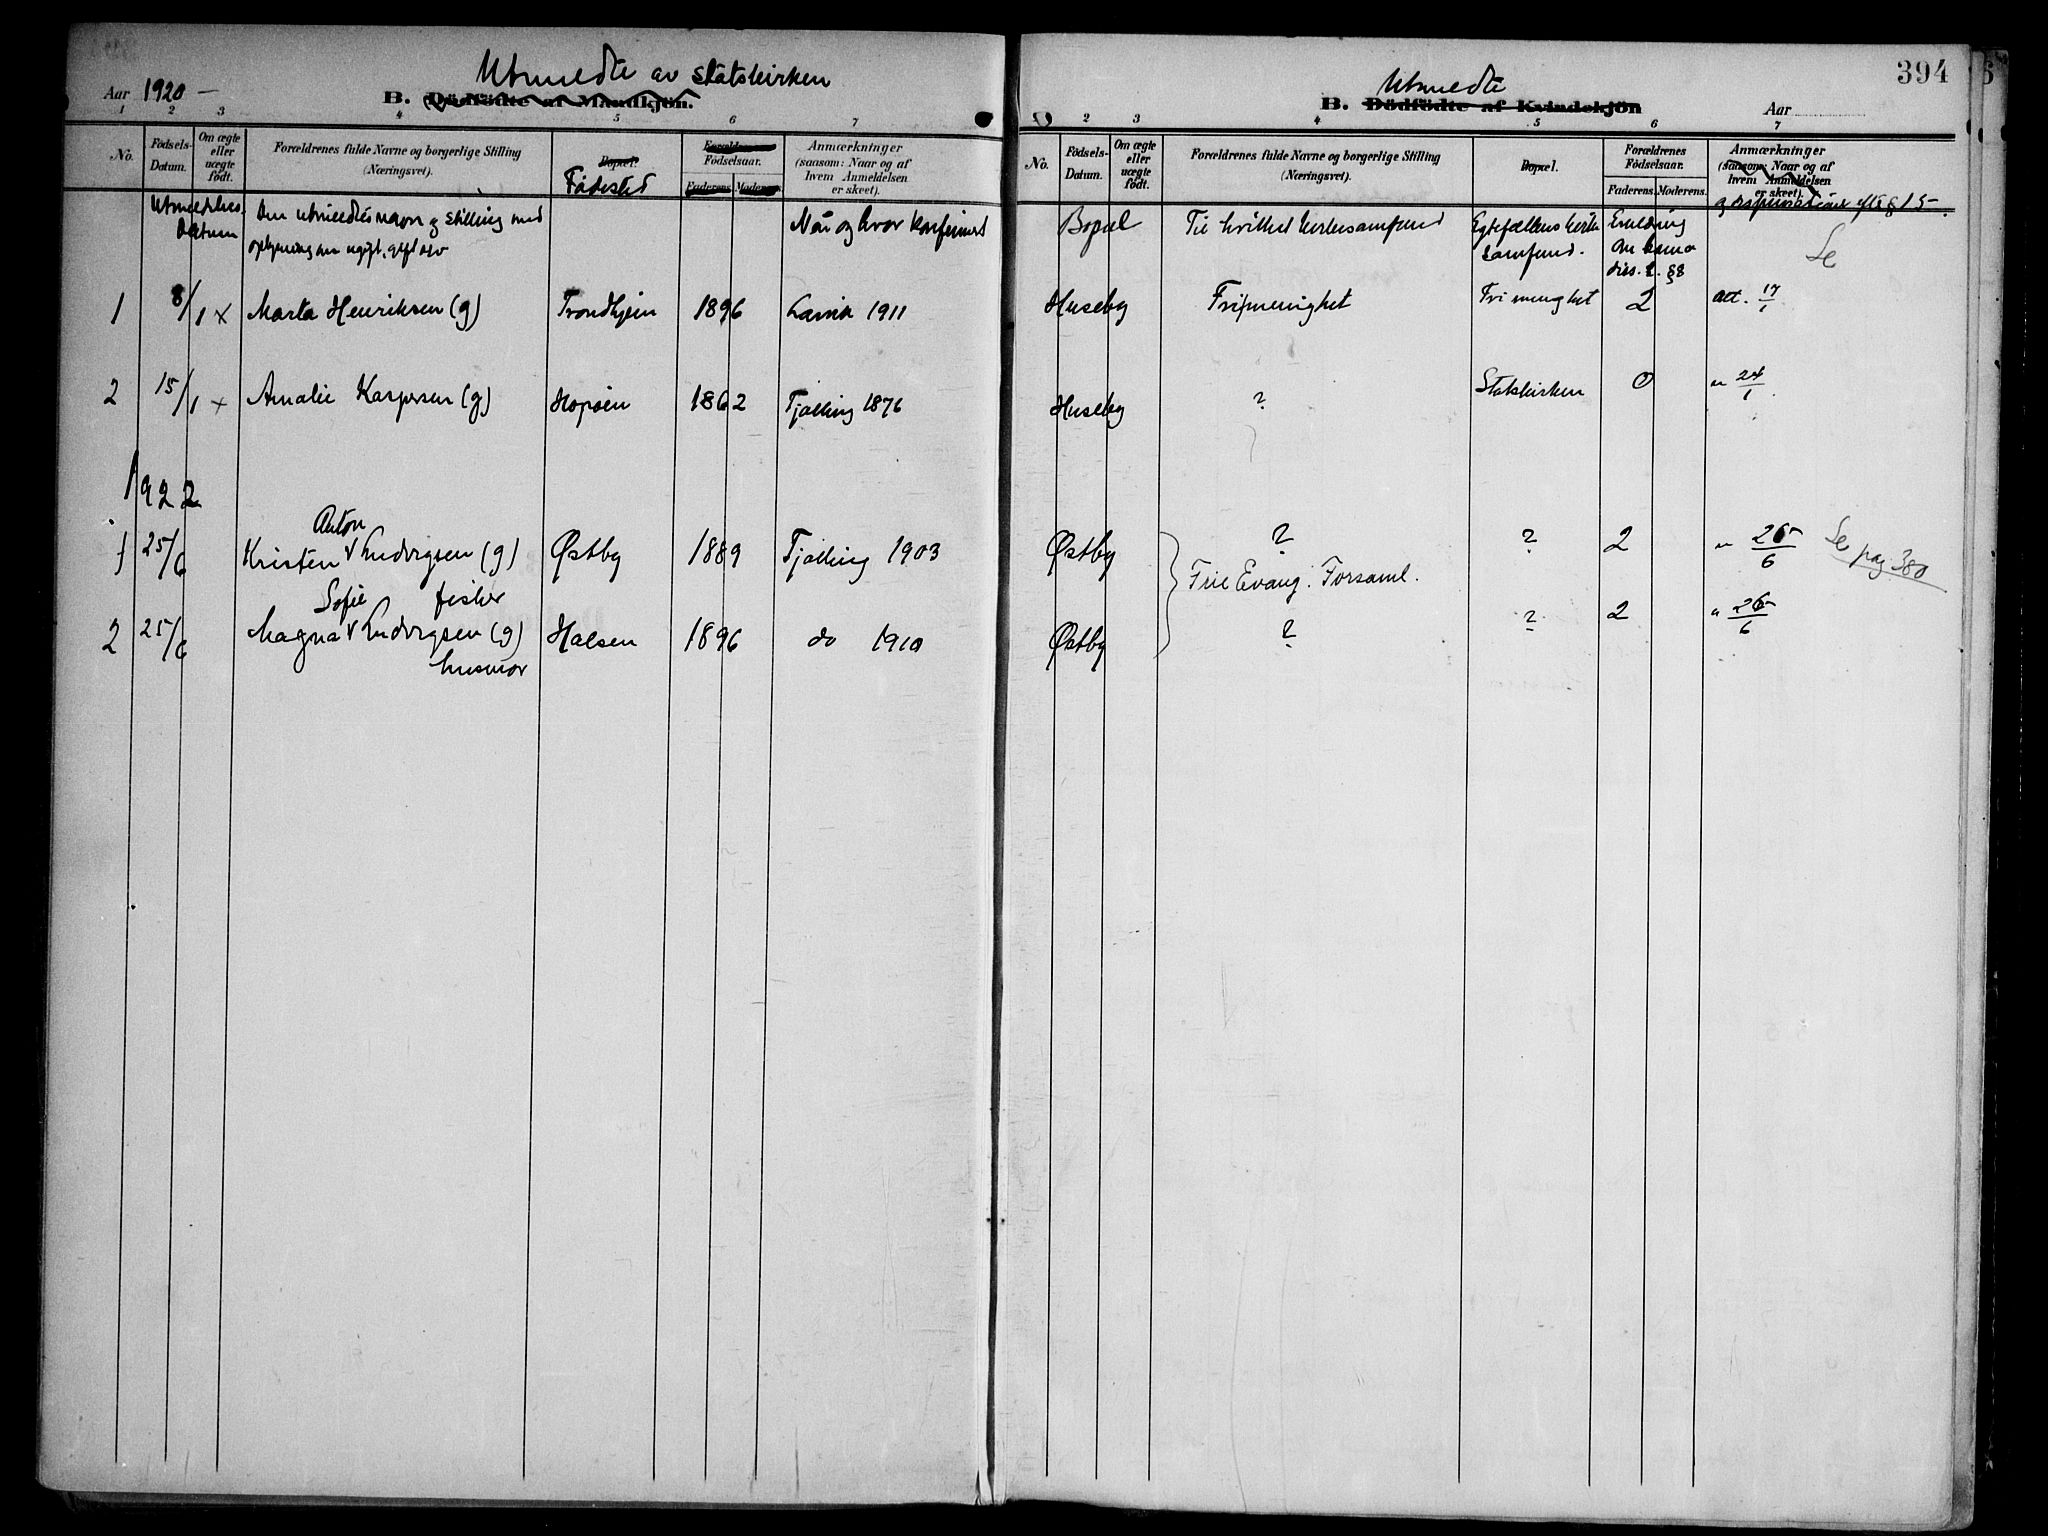 394
Utmeldte av Statskirken
Aar 1920 –
B. Dödfödte af Mandkjön.
1 2 3 4 5 6 7
No.
Födsels-
Datum.
Om ægte
eller
uægte
födt.
Forældrenes fulde Navne og borgerlige Stilling
(Næringsvei).
Bopæl.
Fødested
Forældrenes
Födselsaar.
Faderens. Moderens.
Anmærkninger
(sansom: Naar og af
hvem Anmeldelsen
er skeet).
Utmeldelses-
Datum
Den utmeldtes navn og stilling med
oplysning om ugift, gift osv
Når og hvor konfirmert
1 8/1 x Marta Henriksen (g) Trondhjem 1896 Larvik 1911
2 15/1 x Amalie Kaspersen (g) 1862 Tjølling 1876
1922
Anton
1 25/6 Kristen v Ludvigsen (g) Østby 1889 Tjølling 1903
fisker
Sofie
2 25/6 Magna v Ludvigsen (g) Halsen 1896 do 1910
husmor
Utmeldte
B. Dödfödte af Kvindekjön
Aar
2 3 4 5 6 7
No.
Födsels-
Datum.
Om ægte
eller
uægte
födt.
Forældrenes fulde Navne og borgerlige Stilling
(Næringsvei).
Bopæl.
Forældrenes
Födselsaar.
Faderens. Moderens.
Anmærkninger
(sansom: Naar og af
hvem Anmeldelsen
er skeet).
§ 15
Bopæl
Til hvilket kirkesamfund
Egtefællens kirke
samfund.
Erklæring
om barna
diss. l. §8
Se
Huseby Frimenighet Frimenighet 2 att. 17/1
Huseby ? Statskirken 0 " 24/1
Østby ? ? 2 " 26/6
Se pag 380
Frie Evang. Forsaml.
Østby ? ? 2 " 26/6